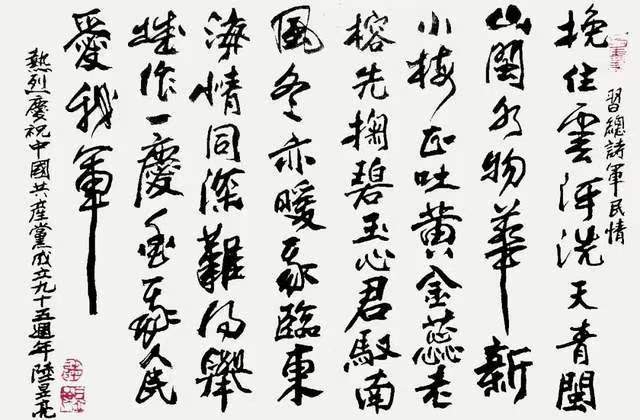 習總詩軍民情
挽住雲河洗天青閩
山閩水物華新
小梅正吐黃金蕊老
榕先掬碧玉心君馭南
風冬亦暖我臨東
海情同深難得舉
城作一慶愛我人民
愛我軍
熱烈慶祝中國共產黨成立九十五週年陸昱亮